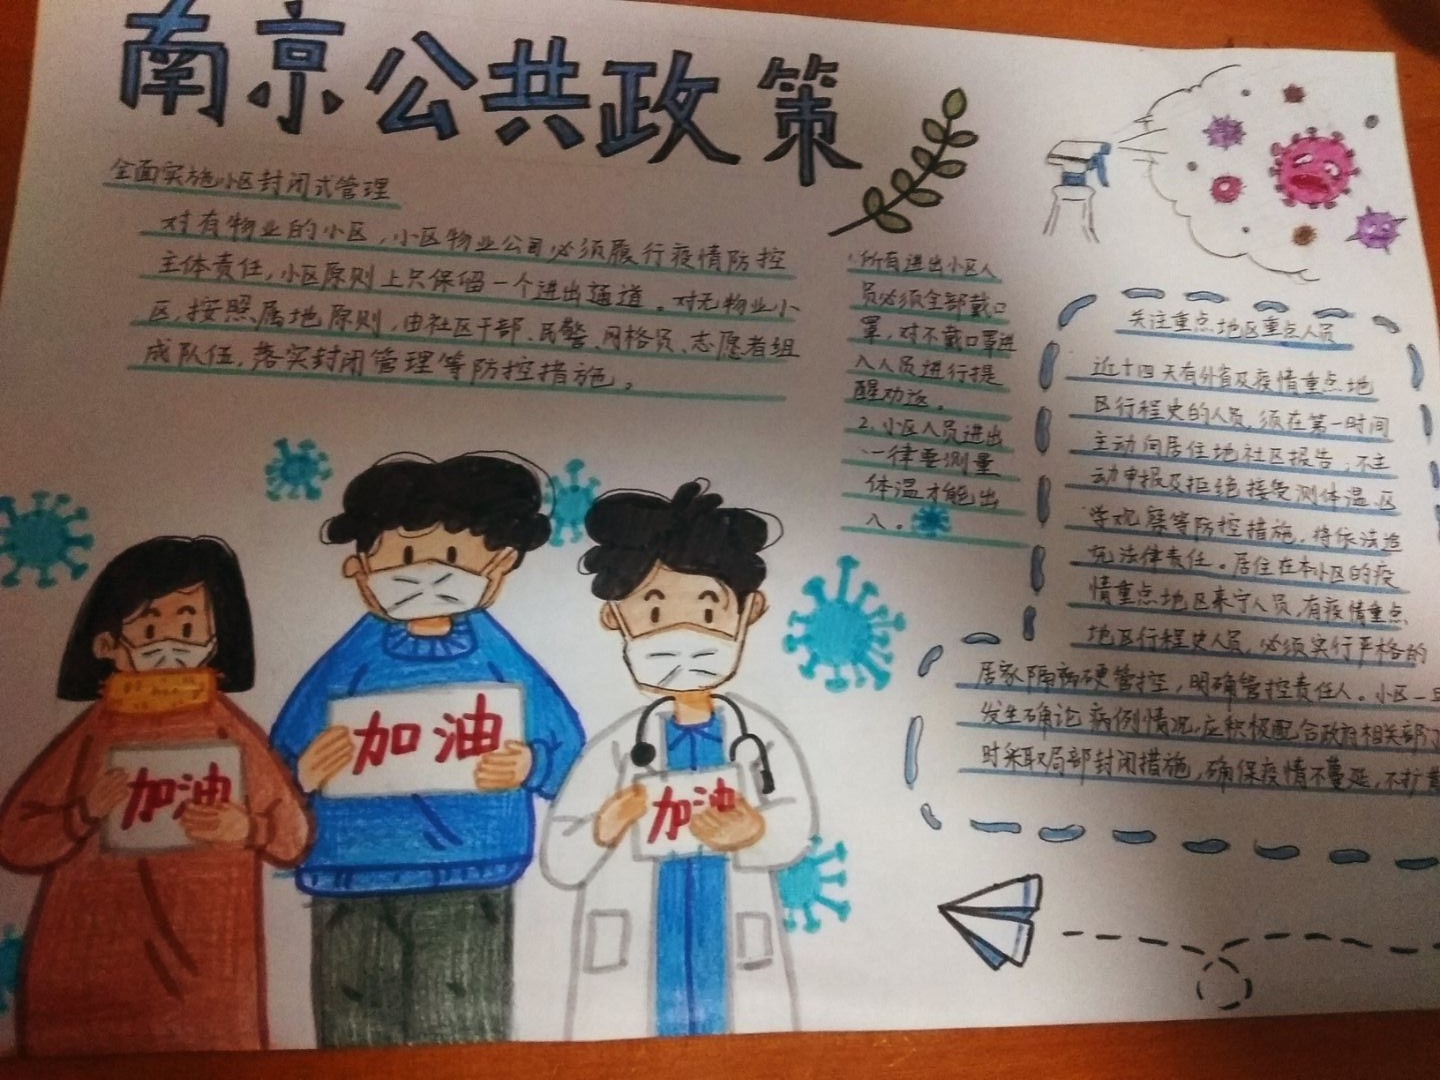 南京公共政策
全面实施小区封闭式管理
对有物业的小区，小区物业公司必须履行疫情防控
主体责任，小区原则上只保留一个进出通道。对无物业小
区，按照属地原则，由社区干部、民警、网格员、志愿者组
成队伍，落实封闭管理等防控措施。
所有进出小区人
员必须全部戴口
罩，对不戴口罩进
入人员进行提
醒劝返。
2.小区人员进出
一律要测量
体温才能出
入。
关注重点地区重点人员
近十四天有外省及疫情重点地
区行程史的人员，须在第一时间
主动向居住地社区报告；不主
动申报及拒绝接受测体温、医
学观察等防控措施，将依法追
究法律责任。居住在本小区的疫
情重点地区来宁人员，有疫情重点
地区行程史人员，必须实行严格的
居家隔离硬管控，明确管控责任人。小区一旦
发生确论病例情况，应积极配合政府相关部门
时采取局部封闭措施，确保疫情不蔓延，不扩
加油
加油
加油